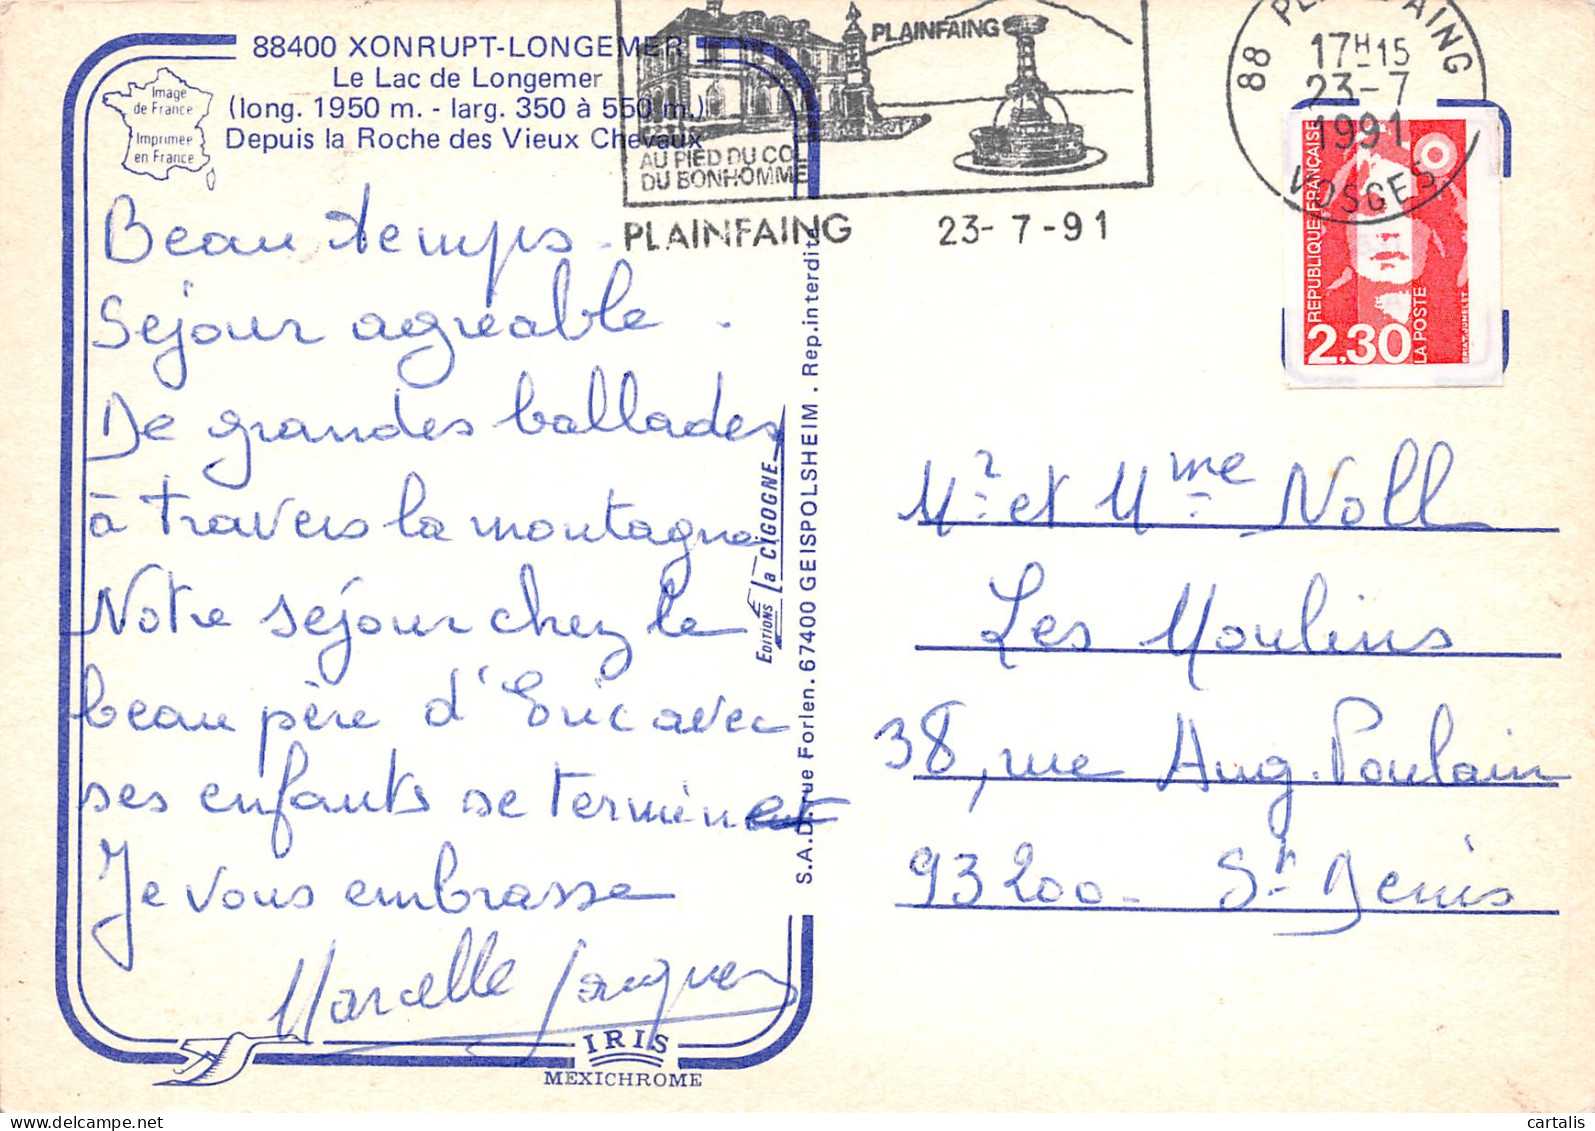 88400 XONRUPT-LONGEMER
Le Lac de Longemer
(long. 1950 m. - larg. 350 à 550 m.)
Depuis la Roche des Vieux Chevaux
Image
de France
Imprimée
en France
Beau temps.
Séjour agréable.
De grandes ballades
à travers la montagne
Notre séjour chez le
beau père d'Eric avec
ses enfants se terminent
Je vous embrasse
Marcelle Jacques
IRIS
MEXICHROME
EDITIONS La CIGOGNE
S.A.D. rue Forlen. 67400 GEISPOLSHEIM. Rep. interdite
PLAINFAING
AU PIED DU COL
DU BONHOMME
PLAINFAING 23-7-91
88 PLAINFAING
17H15
23-7
1991
VOSGES
REPUBLIQUE FRANÇAISE
2,30
LA POSTE
BRIAT-JUMELET
Mr et Mme Noll
Les Moulins
38, rue Aug. Poulain
93200 - St Denis
cartalis